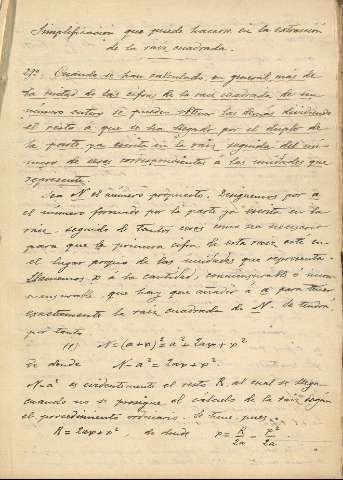 Simplificación que puede hacerse en la extracción
de la raiz cuadrada.
292. Cuando se han calculado, en general, más de
la mitad de las cifras de la raiz cuadrada de un
número entero se pueden obtener las demás dividiendo
el resto á que se ha llegado por el duplo de
la parte ya escrita en la raiz, seguida del nú-
mero de ceros correspondientes á las unidades que
represente.
Sea N el número propuesto. Designemos por a
el número formado por la parte ya escrita en la
raiz, seguido de tantos ceros como sea necesario
para que la primera cifra de esta raiz esté en
el lugar propio de las unidades que representa.
Llamemos x á la cantidad, conmensurable ó incon-
mensurable, que hay que añadir á a para tener
exactamente la raiz cuadrada de N. Se tendrá
por tanto
(1) N=(a+x)²=a²+2ax+x²
de donde N-a²=2ax+x².
N-a² es evidentemente el resto R, al cual se llega
cuando no se prosigue el cálculo de la raiz segun
el procedimiento ordinario. Se tiene pues
R=2ax+x², de donde x=R/2a - x²/2a.